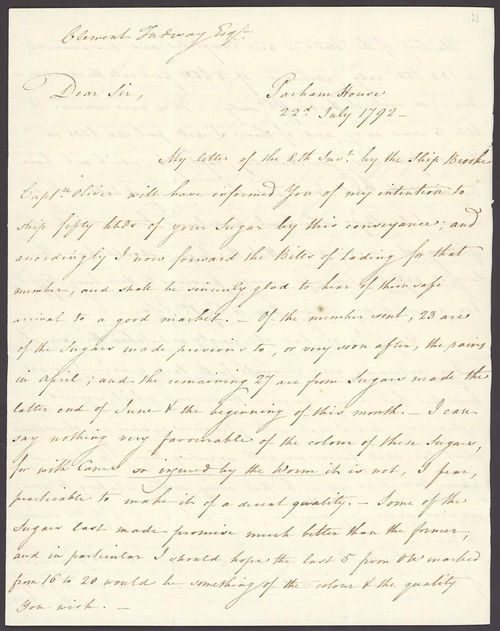 23
Clement Tudway Esqr.
Dear Sir,
Parham House
22d. July 1792 —
My letter of the 8th Inst. by the Ship Brooke
Captn. Oliver will have informed You of my intention to
ship fifty hhds of your Sugar by this conveyance; and
accordingly I now forward the Bills of Lading for that
number, and shall be sincerely glad to hear of their safe
arrival to a good market. — Of the number sent, 23 are
of the Sugars made previous to, or very soon after, the rains
in April; and the remaining 27 are from Sugars made the
latter end of June & the beginning of this month. — I can
say nothing very favourable of the colour of these Sugars,
for with Canes so injured by the Worm it is not, I fear,
practicable to make it of a decent quality. — Some of the
Sugars last made promise much better than the former,
and in particular I should hope the last 5 from marked
from 16 to 20 would be something of the colour & the quality
You wish. —